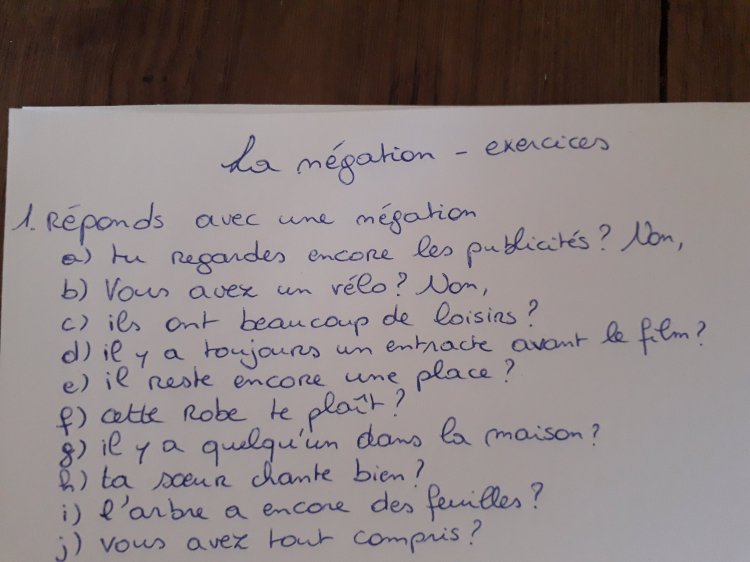 La négation - exercices
1. Réponds avec une négation
a) tu regardes encore les publicités? Non,
b) Vous avez un vélo? Non,
c) ils ont beaucoup de loisirs?
d) il y a toujours un entracte avant le film?
e) il reste encore une place?
f) cette robe te plaît?
g) il y a quelqu'un dans la maison?
h) ta sœur chante bien?
i) l'arbre a encore des feuilles?
j) vous avez tout compris?